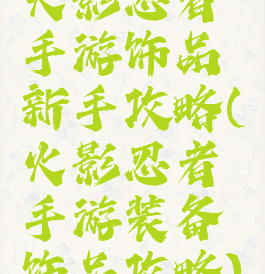 火影忍者
手游饰品
新手攻略(
火影忍者
手游装备
饰品攻略)